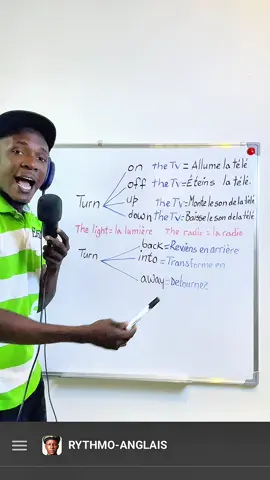 on the TV = Allume la télé
off the TV = Éteins la télé.
Turn
up the TV = Monte le son de la télé
down the TV = Baisse le son de la télé
The light = la lumière The radio = la radio
back = Reviens en arrière
Turn into = Transforme en
away = Détournez
RYTHMO-ANGLAIS